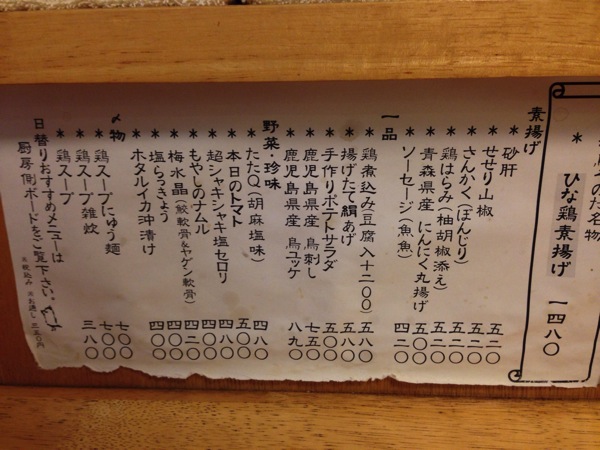 った名物
* ひな鶏素揚げ 一四八〇
素揚げ
* 砂肝 五二〇
* せせり山椒 五二〇
* さんかく(ぼんじり) 五二〇
* 鶏はらみ(柚胡椒添え) 五二〇
* 青森県産 にんにく丸揚げ 五二〇
* ソーセージ(魚魚) 四二〇
一品
* 鶏煮込み豆腐入(十二〇〇) 五八〇
* 揚げたて絹あげ 五八〇
* 手作りポテトサラダ 五〇〇
* 鹿児島県産 鳥刺し 七五〇
* 鹿児島県産 鳥ユッケ 八九〇
野菜・珍味
* たたQ(胡麻塩味) 四八〇
* 本日のトマト 五〇〇
* 超シャキシャキ塩セロリ 四八〇
* もやしのナムル 四〇〇
* 梅水晶(鮫軟骨&ヤゲン軟骨) 四二〇
* 塩らっきょう 四〇〇
* ホタルイカ沖漬け 四〇〇
〆物
* 鶏スープにゅう麺 七〇〇
* 鶏スープ雑炊 七〇〇
* 鶏スープ 三八〇
日替りおすすめメニューは
厨房側ボードをご覧下さい。
※税込み ※お通し 三三〇円